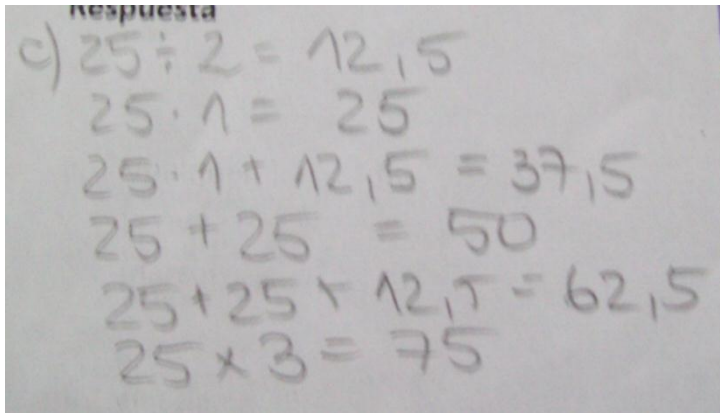 Respuesta
c) 25 ÷ 2 = 12,5
25 · 1 = 25
25 · 1 + 12,5 = 37,5
25 + 25 = 50
25 + 25 + 12,5 = 62,5
25 × 3 = 75